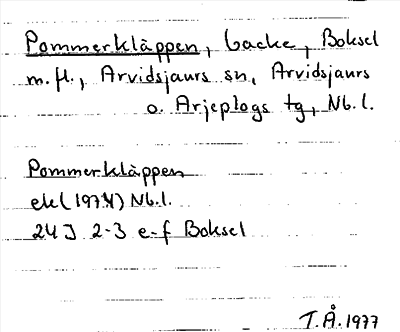 Pommerkläppen, backe, Boksel
m.fl., Arvidsjaurs sn, Arvidsjaurs
o. Arjeplogs tg, Nb.l.
Pommerkläppen
ek (1974) Nb.l.
24J 2-3 e-f Boksel
T.Å. 1977